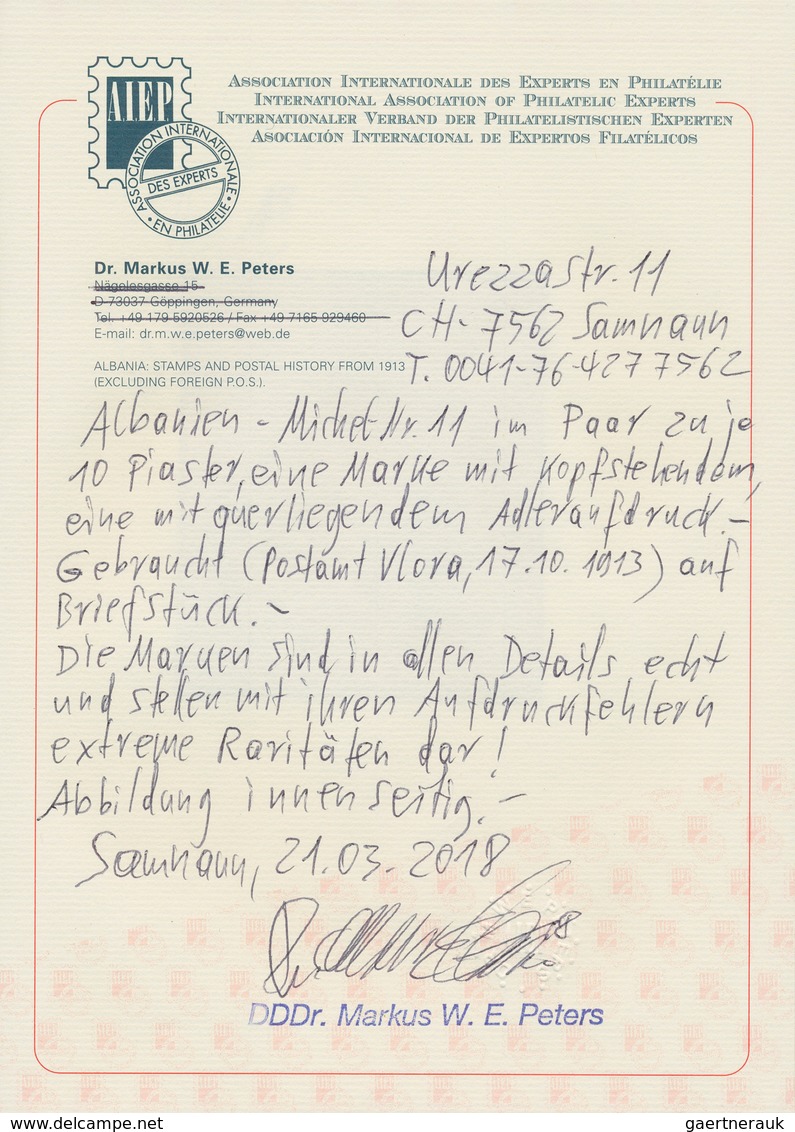 AIEP
ASSOCIATION INTERNATIONALE
DES EXPERTS
• EN PHILATELIE •
ASSOCIATION INTERNATIONALE DES EXPERTS EN PHILATÉLIE
INTERNATIONAL ASSOCIATION OF PHILATELIC EXPERTS
INTERNATIONALER VERBAND DER PHILATELISTISCHEN EXPERTEN
ASOCIACIÓN INTERNACIONAL DE EXPERTOS FILATÉLICOS
Dr. Markus W. E. Peters
Nägelesgasse 15
D-73037 Göppingen, Germany
Tel. +49 179 5920526 / Fax +49 7165 929460
E-mail: dr.m.w.e.peters@web.de
ALBANIA: STAMPS AND POSTAL HISTORY FROM 1913
(EXCLUDING FOREIGN P.O.S.).
Urezzastr. 11
CH-7562 Samnaun
T. 0041-76-427 7562
Albanien - Michel-Nr. 11 im Paar zu je
10 Piaster, eine Marke mit kopfstehendem,
eine mit querliegendem Adleraufdruck. -
Gebraucht (Postamt Vlora, 17.10.1913) auf
Briefstück. -
Die Marken sind in allen Details echt
und stellen mit ihren Aufdruckfehlern
extreme Raritäten dar!
Abbildung innenseitig. -
Samnaun, 21.03.2018
DDDr. Markus W. E. Peters
www.delcampe.net
gaertnerauk